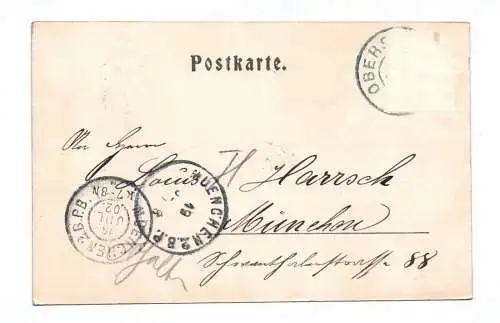 Postkarte.
OBERS
An Herrn
Louis Harrsch
München
Schwanthalerstrasse 88
MUENCHEN 2.B.P.
19
MUENCHEN 2.B.P.B.
JUL
02